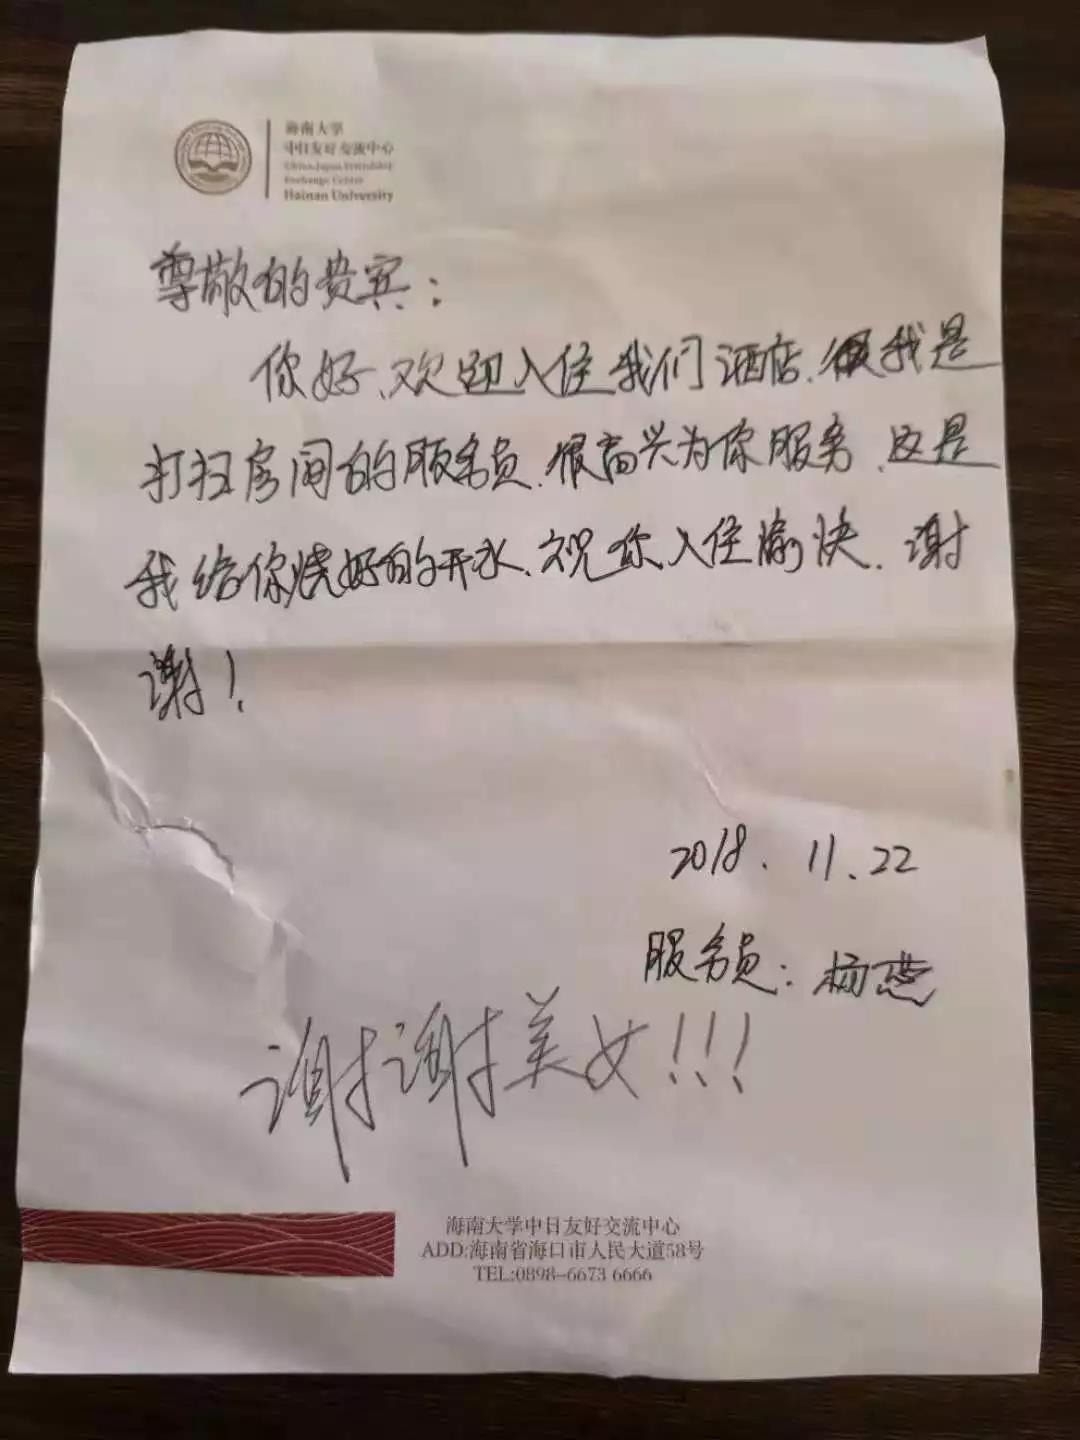 海南大学
中日友好交流中心
China-Japan Friendship
Exchange Center
Hainan University
尊敬的贵宾：
你好、欢迎入住我们酒店、我是
打扫房间的服务员、很高兴为你服务、这是
我给你烧好的开水、祝你入住愉快、谢
谢！
2018.11.22
服务员：杨燕
谢谢美女!!!
海南大学中日友好交流中心
ADD:海南省海口市人民大道58号
TEL:0898-6673 6666